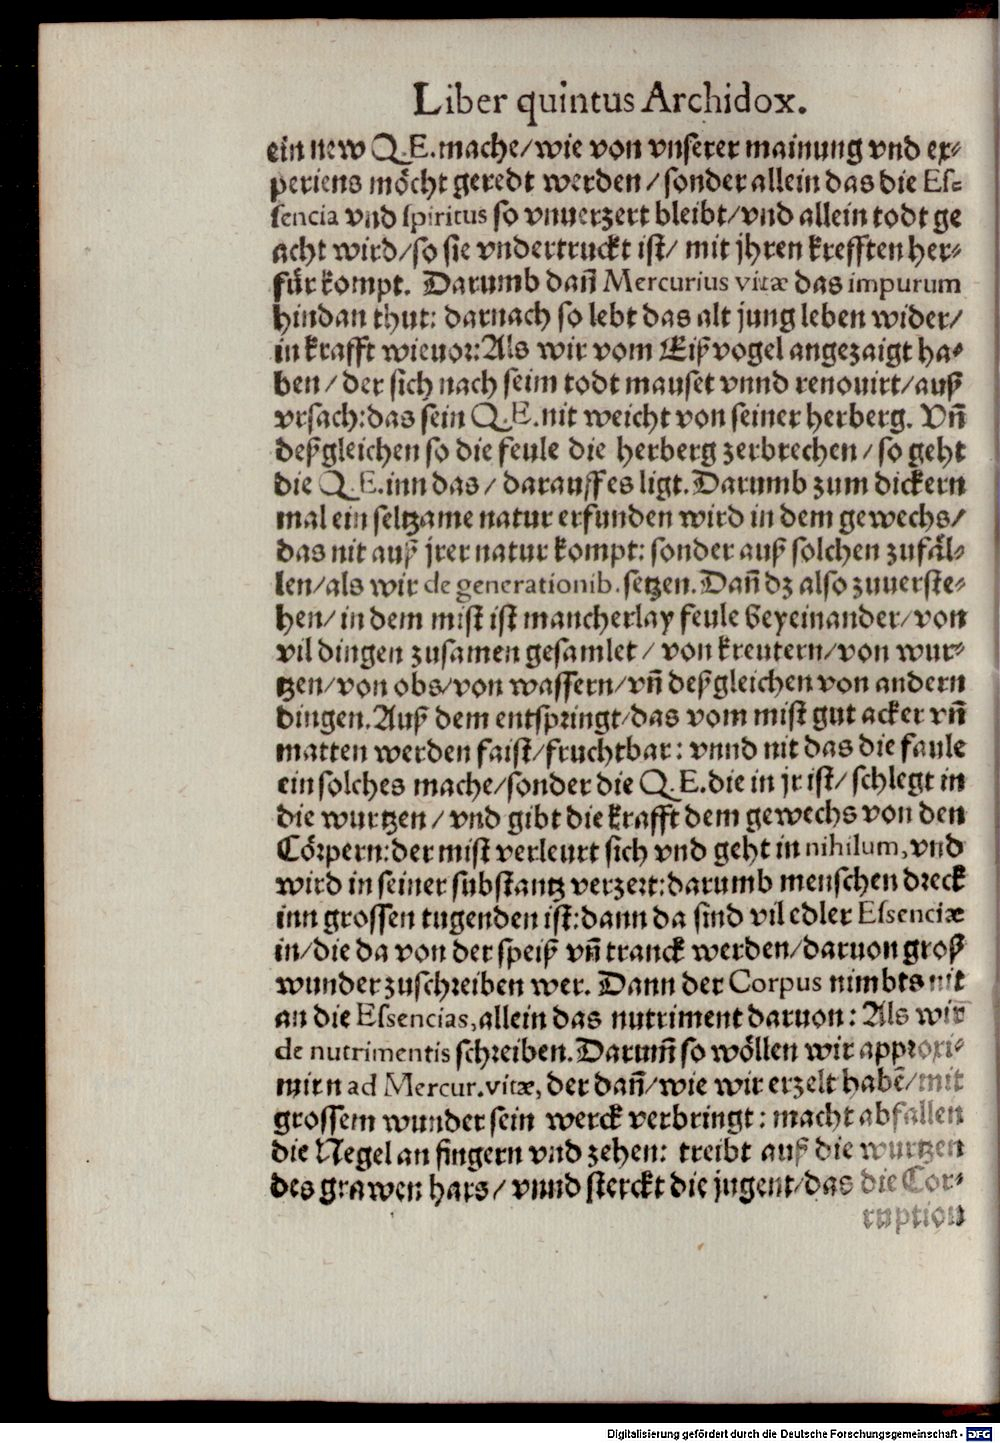 Liber quintus Archidox.
ein new Q.E. mache/wie von vnserer mainung vnd ex-
periens möcht geredt werden/sonder allein das die Es-
sencia vnd spiritus so vnuerzert bleibt/vnd allein todt ge
acht wird/so sie vndertruckt ist/ mit jhren krefften her-
für kompt. Darumb dañ Mercurius vitæ das impurum
hindan thut: darnach so lebt das alt jung leben wider/
in krafft wieuor: Als wir vom Eißvogel angezaigt ha-
ben/der sich nach seim todt mauset vnnd renouirt/auß
vrsach: das sein Q.E. nit weicht von seiner herberg. Vñ
deßgleichen so die feule die herberg zerbrechen/so geht
die Q.E. inn das/darauff es ligt. Darumb zum dickern
mal ein seltzame natur erfunden wird in dem gewechs/
das nit auß jrer natur kompt: sonder auß solchen zufäl-
len/als wir de generationib. setzen. Dañ dz also zuuerste-
hen/in dem mist ist mancherlay feule beyeinander/von
vil dingen zusamen gesamlet/von kreutern/von wur-
tzen/von obs/von wassern/vñ deßgleichen von andern
dingen. Auß dem entspringt/das vom mist gut acker vñ
matten werden faist/fruchtbar: vnnd nit das die faule
ein solches mache/sonder die Q.E. die in jr ist/schlegt in
die wurtzen/vnd gibt die krafft dem gewechs von den
Cörpern: der mist verleurt sich vnd geht in nihilum, vnd
wird in seiner substantz verzert: darumb menschen dreck
inn grossen tugenden ist: dann da sind vil edler Essenciæ
in/die da von der speiß vñ tranck werden/daruon groß
wunder zuschreiben wer. Dann der Corpus nimbts nit
an die Essencias, allein das nutriment daruon: Als wir
de nutrimentis schreiben. Darum̃ so wöllen wir approxi-
mirn ad Mercur. vitæ, der dañ/wie wir erzelt habẽ/mit
grossem wunder sein werck verbringt: macht abfallen
die Negel an fingern vnd zehen: treibt auß die wurtzen
des grawen hars/vnnd sterckt die jugent/das die Cor-
ruption
Digitalisierung gefördert durch die Deutsche Forschungsgemeinschaft - DFG